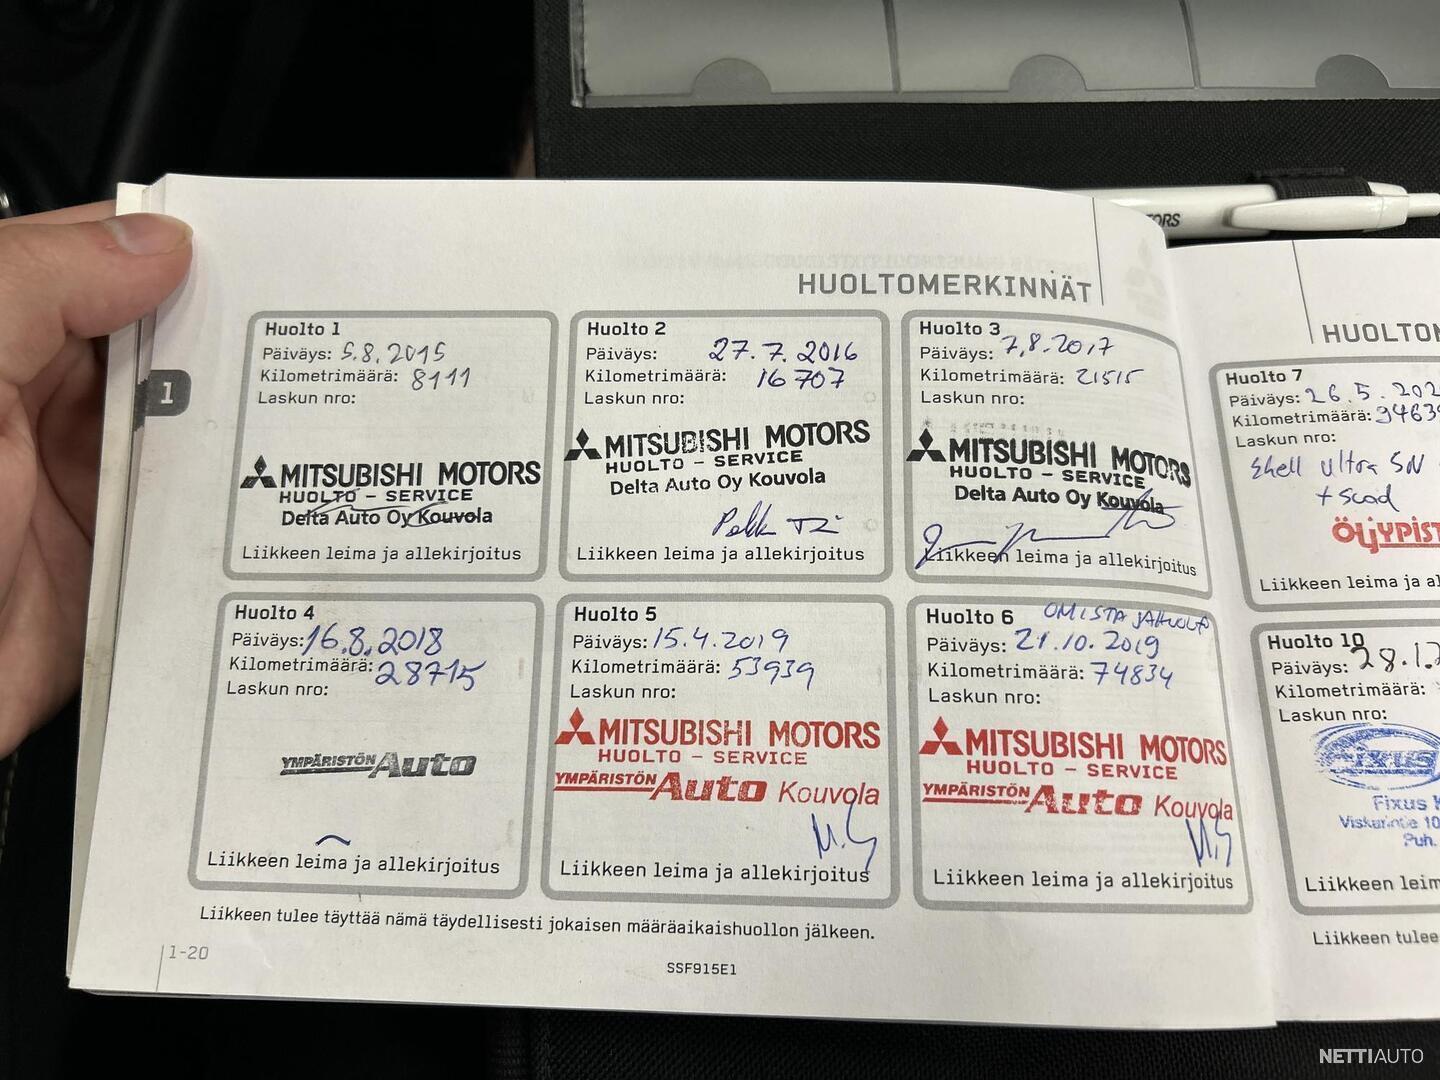 HUOLTOMERKINNÄT
Huolto 1
Päiväys: 5.8.2015
Kilometrimäärä: 8111
Laskun nro:
MITSUBISHI MOTORS
HUOLTO - SERVICE
Delta Auto Oy Kouvola
Liikkeen leima ja allekirjoitus
Huolto 2
Päiväys: 27.7.2016
Kilometrimäärä: 16707
Laskun nro:
MITSUBISHI MOTORS
HUOLTO - SERVICE
Delta Auto Oy Kouvola
Liikkeen leima ja allekirjoitus
Huolto 3
Päiväys: 7.8.2017
Kilometrimäärä: 21515
Laskun nro:
MITSUBISHI MOTORS
HUOLTO - SERVICE
Delta Auto Oy Kouvola
Liikkeen leima ja allekirjoitus
Huolto 4
Päiväys: 16.8.2018
Kilometrimäärä: 28715
Laskun nro:
YMPÄRISTÖN Auto
Liikkeen leima ja allekirjoitus
Huolto 5
Päiväys: 15.4.2019
Kilometrimäärä: 53939
Laskun nro:
MITSUBISHI MOTORS
HUOLTO - SERVICE
YMPÄRISTÖN Auto Kouvola
Liikkeen leima ja allekirjoitus
Huolto 6 OMISTAJAHUOLTO
Päiväys: 21.10.2019
Kilometrimäärä: 74834
Laskun nro:
MITSUBISHI MOTORS
HUOLTO - SERVICE
YMPÄRISTÖN Auto Kouvola
Liikkeen leima ja allekirjoitus
Liikkeen tulee täyttää nämä täydellisesti jokaisen määräaikaishuollon jälkeen.
1-20
SSF915E1
1
HUOLTOM
Huolto 7
Päiväys: 26.5.202
Kilometrimäärä: 9463
Laskun nro:
Shell Ultra 5W
ÖLJYPIST
Liikkeen leima ja al
Huolto 10
Päiväys: 28.1.2
Kilometrimäärä:
Laskun nro:
Fixus
Fixus K
Viskarintie 10
Puh.
Liikkeen leim
Liikkeen tulee
TORS
NETTIAUTO